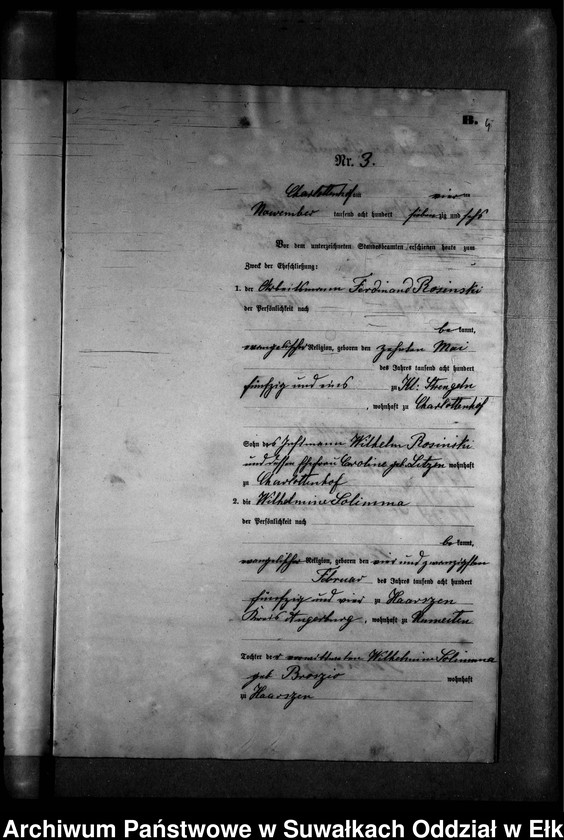 B. 4
Nr. 3.
Charlottenhof am vier
November tausend acht hundert siebenzig und sechs
Vor dem unterzeichneten Standesbeamten erschienen heute zum
Zweck der Eheschließung:
1. der Arbeitsmann Ferdinand Rosinski
der Persönlichkeit nach
bekannt,
evangelischer Religion, geboren den zehnten Mai
des Jahres tausend acht hundert
fünfzig und eins zu Kl: Strengeln
, wohnhaft zu Charlottenhof
Sohn des Instmann Wilhelm Rosinski
und dessen Ehefrau Caroline geb. Litzen wohnhaft
zu Charlottenhof
2. die Wilhelmine Solimma
der Persönlichkeit nach
bekannt,
evangelischer Religion, geboren den vier und zwanzigsten
Februar des Jahres tausend acht hundert
fünfzig und vier zu Haarszen
Kreis Angerburg, wohnhaft zu
Tochter der verwittweten Wilhelmine Solimma
geb Broszio wohnhaft
zu Haarszen
Archiwum Państwowe w Suwałkach Oddział w Ełk